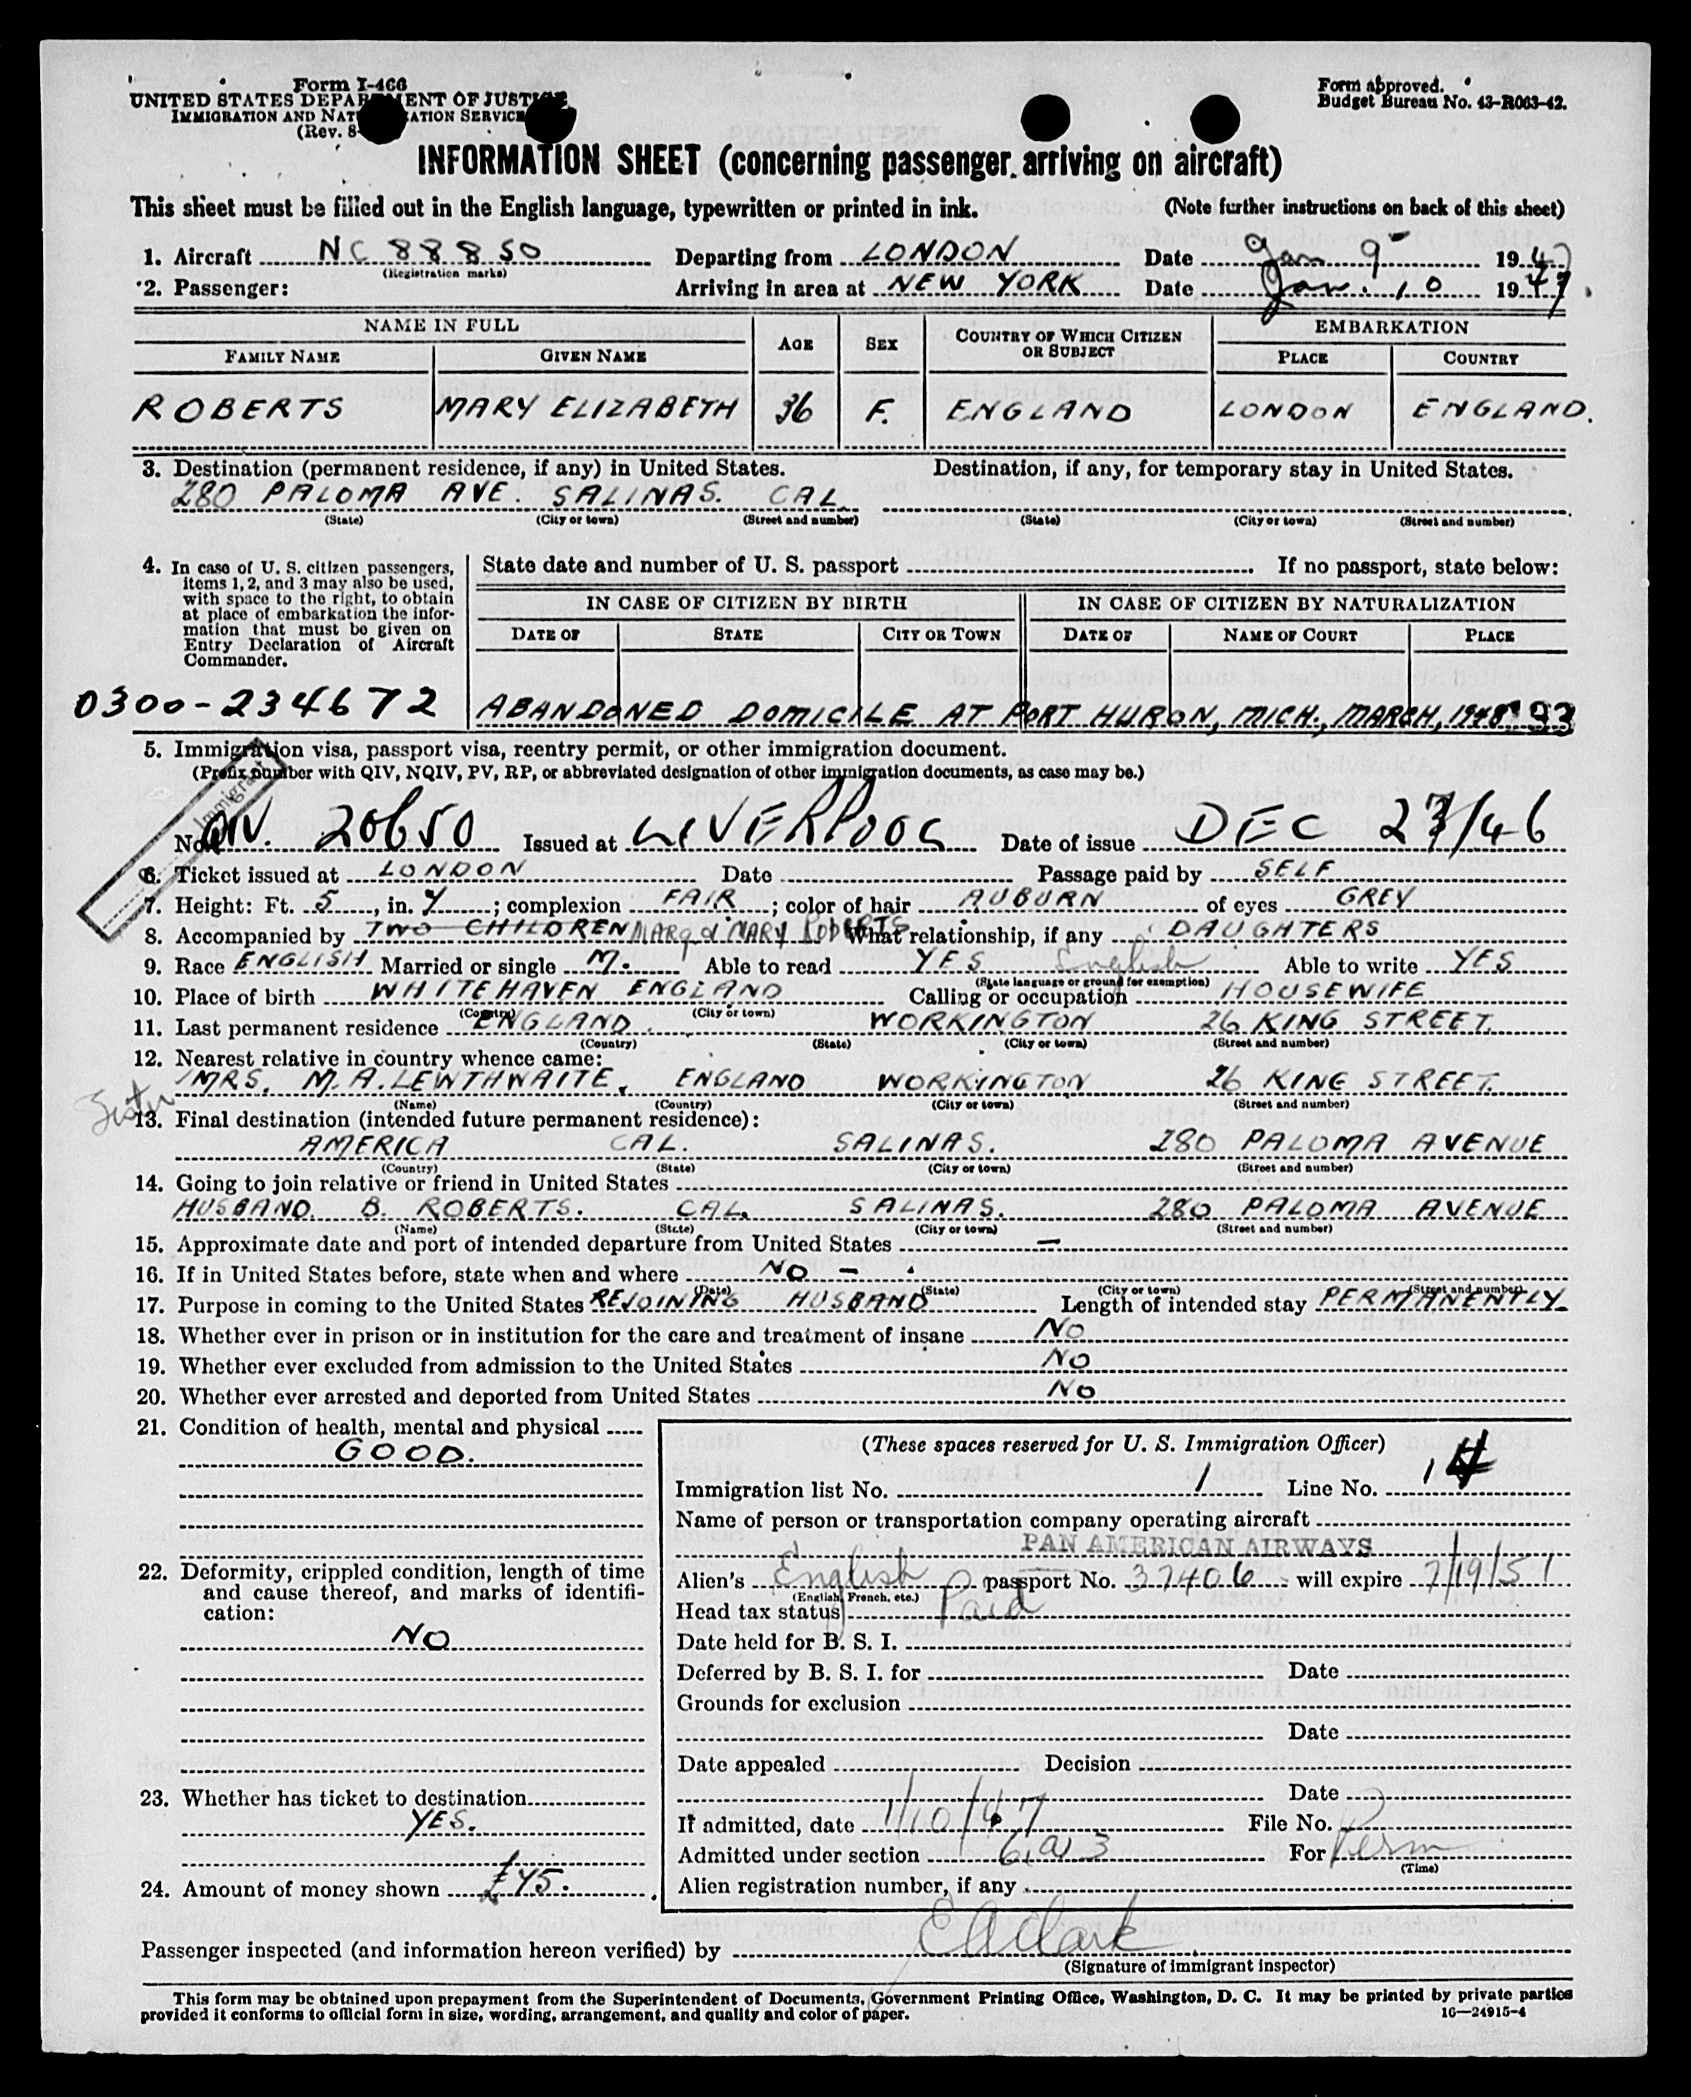 Form I-466
UNITED STATES DEPARTMENT OF JUSTICE
IMMIGRATION AND NATURALIZATION SERVICE
(Rev. 8-
Form approved.
Budget Bureau No. 43-R063-42.
INFORMATION SHEET (concerning passenger arriving on aircraft)
This sheet must be filled out in the English language, typewritten or printed in ink. (Note further instructions on back of this sheet)
1. Aircraft NC 88850 Departing from LONDON Date Jan 9 1947
(Registration marks)
2. Passenger: Arriving in area at NEW YORK Date Jan. 10 1947
NAME IN FULL AGE SEX COUNTRY OF WHICH CITIZEN OR SUBJECT EMBARKATION
FAMILY NAME GIVEN NAME PLACE COUNTRY
ROBERTS MARY ELIZABETH 36 F. ENGLAND LONDON ENGLAND.
3. Destination (permanent residence, if any) in United States. Destination, if any, for temporary stay in United States.
280 PALOMA AVE. SALINAS. CAL.
(State) (City or town) (Street and number) (State) (City or town) (Street and number)
4. In case of U. S. citizen passengers, items 1, 2, and 3 may also be used, with space to the right, to obtain at place of embarkation the information that must be given on Entry Declaration of Aircraft Commander.
State date and number of U. S. passport If no passport, state below:
IN CASE OF CITIZEN BY BIRTH IN CASE OF CITIZEN BY NATURALIZATION
DATE OF STATE CITY OR TOWN DATE OF NAME OF COURT PLACE
0300-234672 ABANDONED DOMICILE AT PORT HURON, MICH., MARCH, 1948 93
5. Immigration visa, passport visa, reentry permit, or other immigration document.
(Prefix number with QIV, NQIV, PV, RP, or abbreviated designation of other immigration documents, as case may be.)
Immigrant
No. QIV. 20650 Issued at LIVERPOOL Date of issue DEC 27/46
6. Ticket issued at LONDON Date Passage paid by SELF
7. Height: Ft. 5, in. 4; complexion FAIR; color of hair AUBURN of eyes GREY
8. Accompanied by TWO CHILDREN MARG & MARY ROBERTS What relationship, if any DAUGHTERS
9. Race ENGLISH Married or single M. Able to read YES English Able to write YES
(State language or ground for exemption)
10. Place of birth WHITEHAVEN ENGLAND Calling or occupation HOUSEWIFE
(Country) (City or town)
11. Last permanent residence ENGLAND WORKINGTON 26 KING STREET.
(Country) (State) (City or town) (Street and number)
12. Nearest relative in country whence came:
Sister MRS. M. A. LEWTHWAITE, ENGLAND WORKINGTON 26 KING STREET.
(Name) (Country) (City or town) (Street and number)
13. Final destination (intended future permanent residence):
AMERICA CAL. SALINAS. 280 PALOMA AVENUE
(Country) (State) (City or town) (Street and number)
14. Going to join relative or friend in United States
HUSBAND. B. ROBERTS. CAL. SALINAS. 280 PALOMA AVENUE
(Name) (State) (City or town) (Street and number)
15. Approximate date and port of intended departure from United States —
16. If in United States before, state when and where NO —
(Date) (State) (City or town) (Street and number)
17. Purpose in coming to the United States REJOINING HUSBAND Length of intended stay PERMANENTLY
18. Whether ever in prison or in institution for the care and treatment of insane NO
19. Whether ever excluded from admission to the United States NO
20. Whether ever arrested and deported from United States NO
21. Condition of health, mental and physical
GOOD.
22. Deformity, crippled condition, length of time and cause thereof, and marks of identification:
NO
23. Whether has ticket to destination
YES.
24. Amount of money shown £45.
(These spaces reserved for U. S. Immigration Officer)
Immigration list No. 1 Line No. 1
Name of person or transportation company operating aircraft
PAN AMERICAN AIRWAYS
Alien's English passport No. 37406 will expire 7/19/51
(English, French, etc.)
Head tax status Paid
Date held for B. S. I.
Deferred by B. S. I. for Date
Grounds for exclusion
Date
Date appealed Decision
Date
If admitted, date 1/10/47 File No.
Admitted under section 6(a)3 For Perm
(Time)
Alien registration number, if any
Passenger inspected (and information hereon verified) by E A Clark
(Signature of immigrant inspector)
This form may be obtained upon prepayment from the Superintendent of Documents, Government Printing Office, Washington, D. C. It may be printed by private parties
provided it conforms to official form in size, wording, arrangement, and quality and color of paper. 16—24915-4